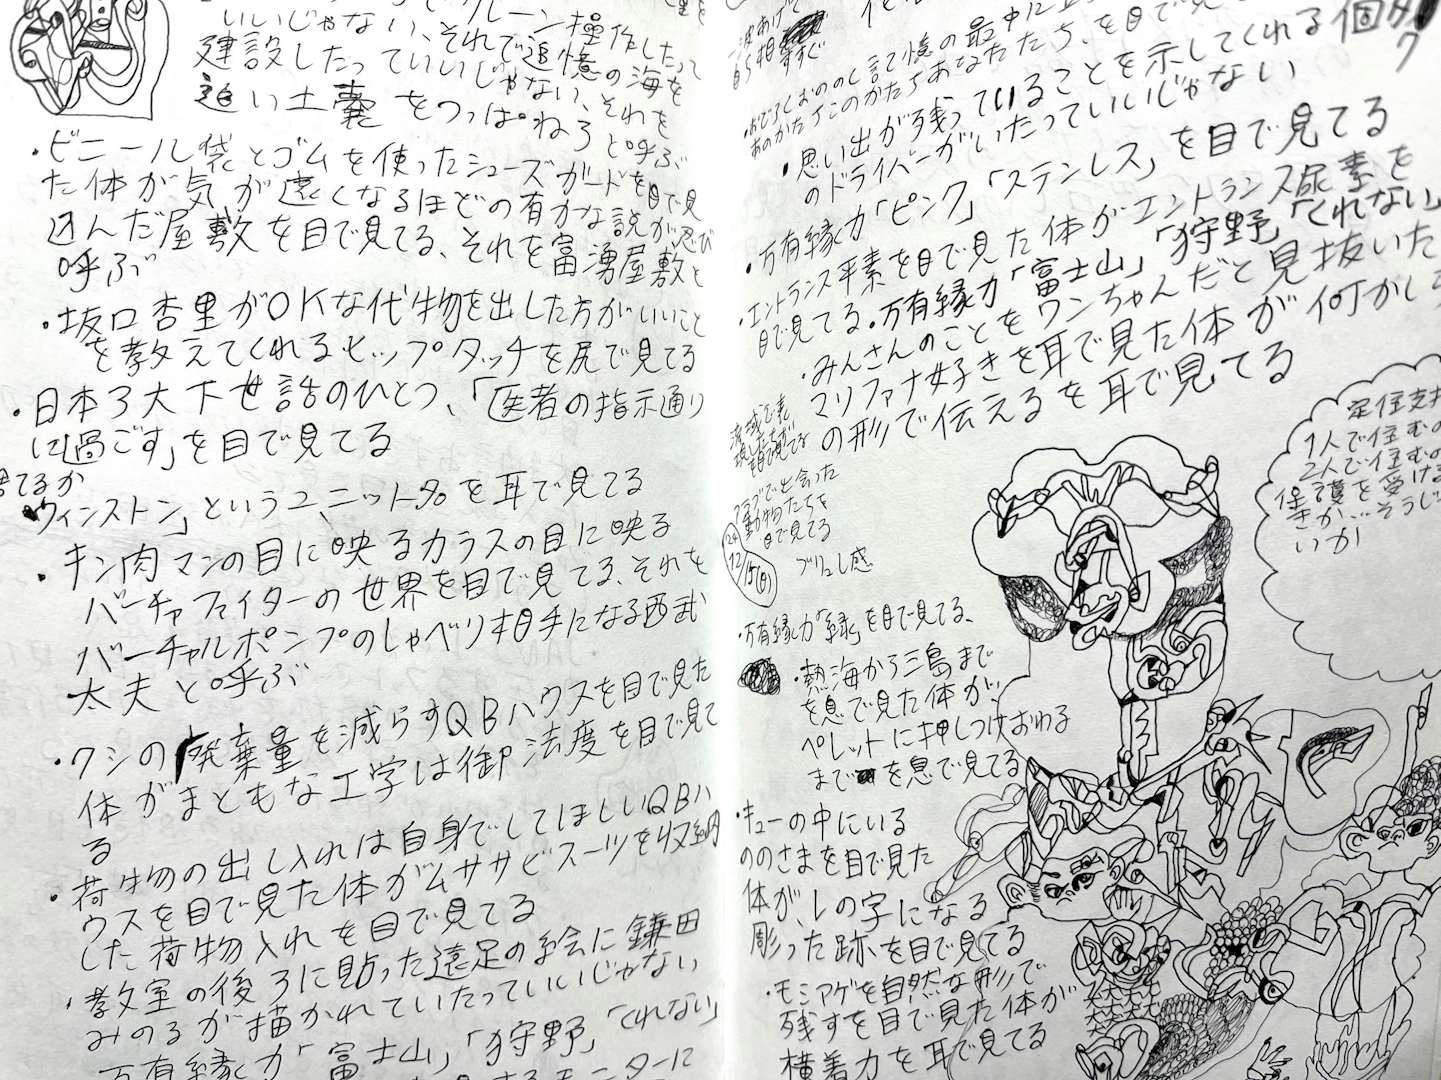 いいじゃない、それで追憶の海を
建設したっていいじゃない、それを
追い土嚢をつっぱねろと呼ぶ
・ビニール袋とゴムを使ったシューズガードを目で見
た体が気が遠くなるほどの有力な説が忍び
込んだ屋敷を目で見てる、それを富湧屋敷と
呼ぶ
・坂口杏里がOKな代物を出した方がいいこと
を教えてくれるヒップタッチを尻で見てる
・日本3大下世話のひとつ、「医者の指示通り
に過ごす」を目で見てる
てるか
ウィンストン」というユニット名を耳で見てる
・キン肉マンの目に映るカラスの目に映る
バーチャファイターの世界を目で見てる、それを
バーチャルポンプのしゃべり相手になる西武
太夫と呼ぶ
・クシの廃棄量を減らすQBハウスを目で見た
体がまともな工学は御法度を目で見て
る
・荷物の出し入れは自身でしてほしいQBハ
ウスを目で見た体がムササビスーツを収納
した荷物入れを目で見てる
・教室の後ろに貼った遠足の絵に鎌田
みのるが描かれていたっていいじゃない
万有縁力「富士山」「狩野」「くれない」
するモニターに
・思い出が残っていることを示してくれる個タク
のドライバーがいたっていいじゃない
・万有縁力「ピンク」「ステンレス」を目で見てる
・エントランス平素を目で見た体がエントランス尿素を
目で見てる・万有縁力「富士山」「狩野」「くれない」
・みんさんのことをワンちゃんだと見抜いた
マリファナ好きを耳で見た体が何かし
の形で伝えるを耳で見てる
で出会った
動物たちを
目で見てる
24
12/15(日)
ブリュレ感
・万有縁力「縁」を目で見てる、
・熱海から三島まで
を息で見た体が、
ペレットに押しつけおわる
までを息で見てる
・キューの中にいる
ののさまを目で見た
体が、レの字になる
彫った跡を目で見てる
・モンアゲを自然な形で
残すを目で見た体が
横着力を耳で見てる
定住支
1人で住むの
2人で住むの
保護を受ける
きか…そうじ
いか